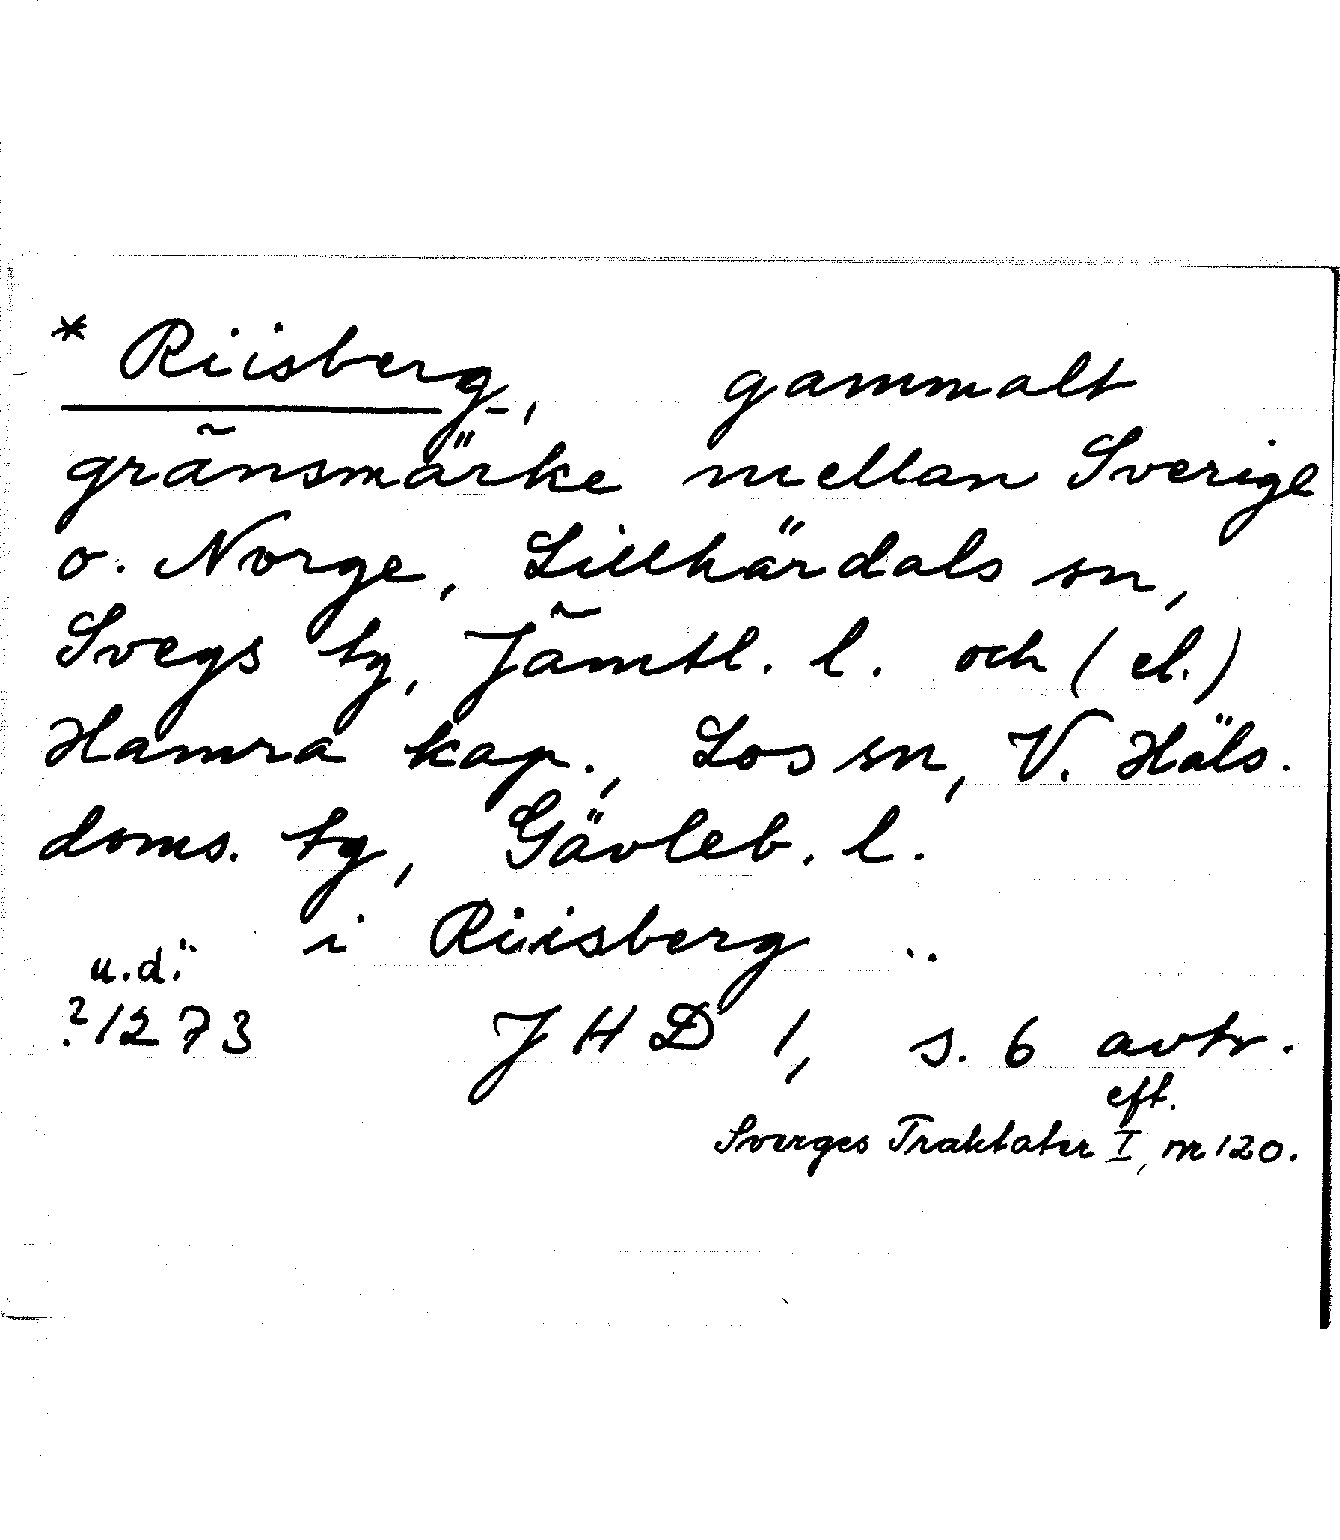 * Riisberg, gammalt
gränsmärke mellan Sverige
o. Norge, Lillhärdals sn,
Svegs tg, Jämtl. l. och (el.)
Hamra kap., Los sn, V. Häls.
doms. tg, Gävleb. l.
i Riisberg ..
u.d.:
?1273 JHD 1, s. 6 avtr.
eft.
Sverges Traktater I, nr 120.